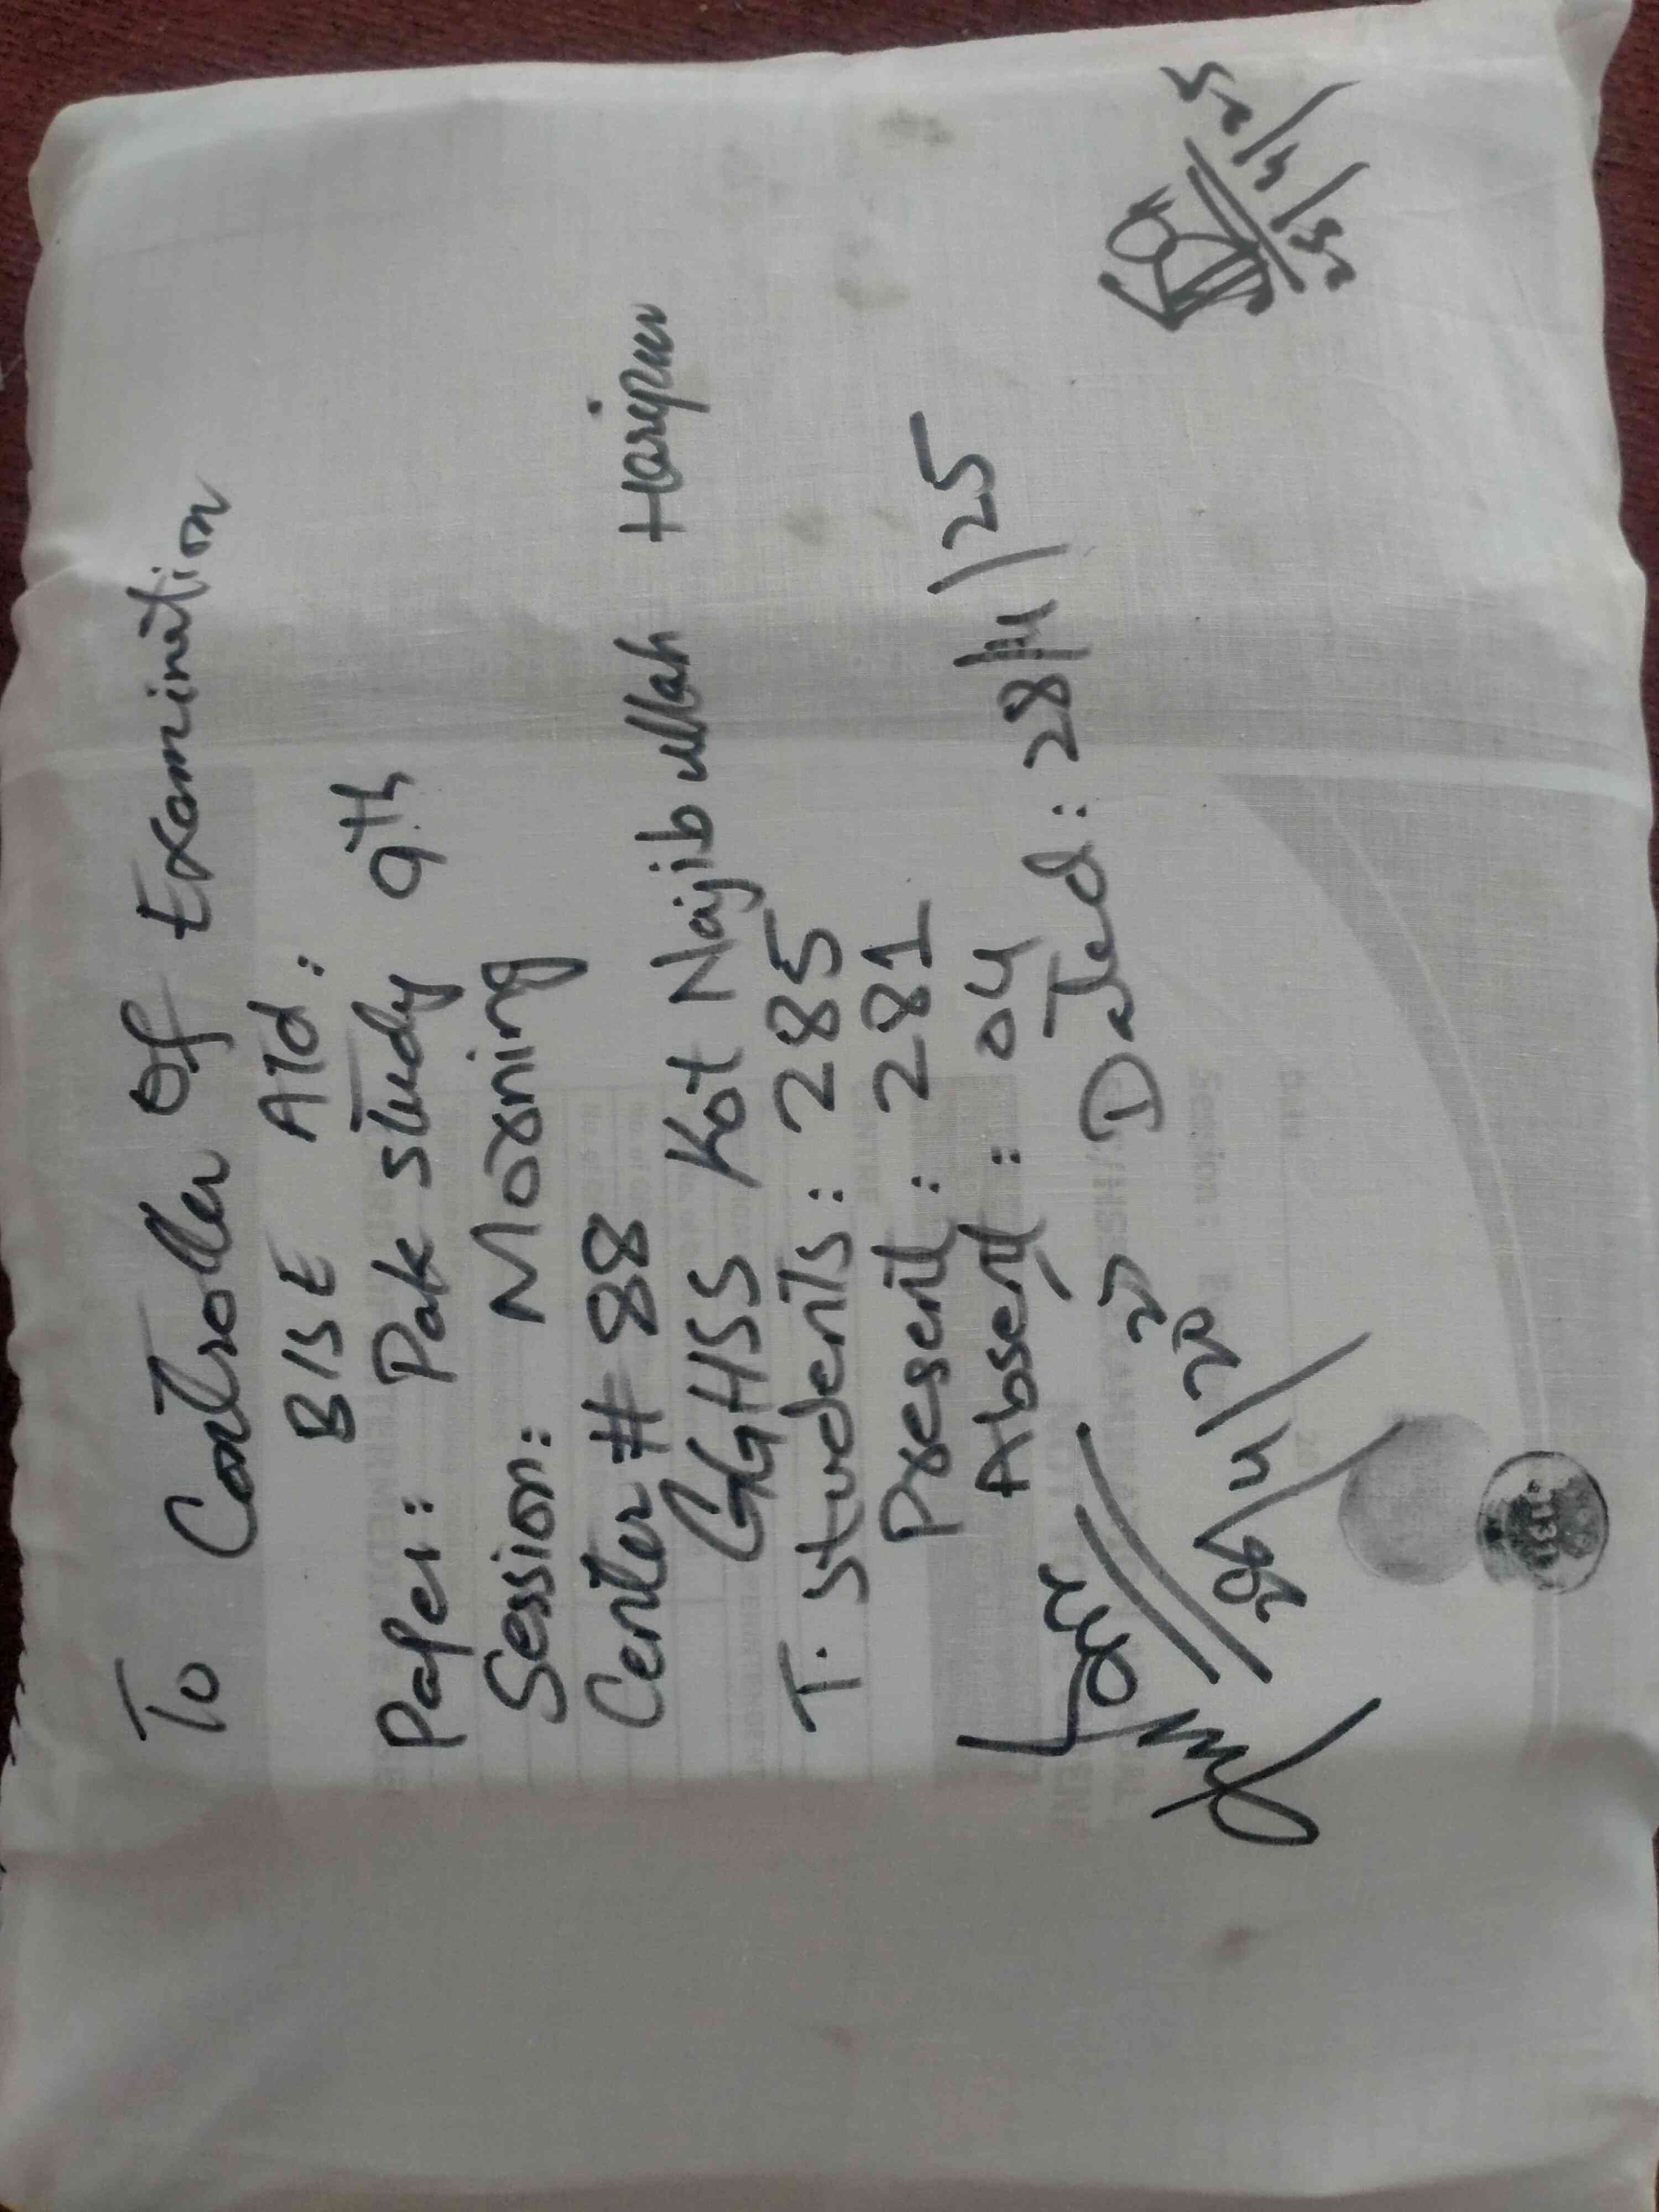 To Controller Of Examination
BISE ATd:
Paper: Pak study 9th
Session: Morning
Center # 88
GGHSS Kot Najibullah Haripur
T. students: 285
Present: 281
Absent: 04
Dated: 28/4/25